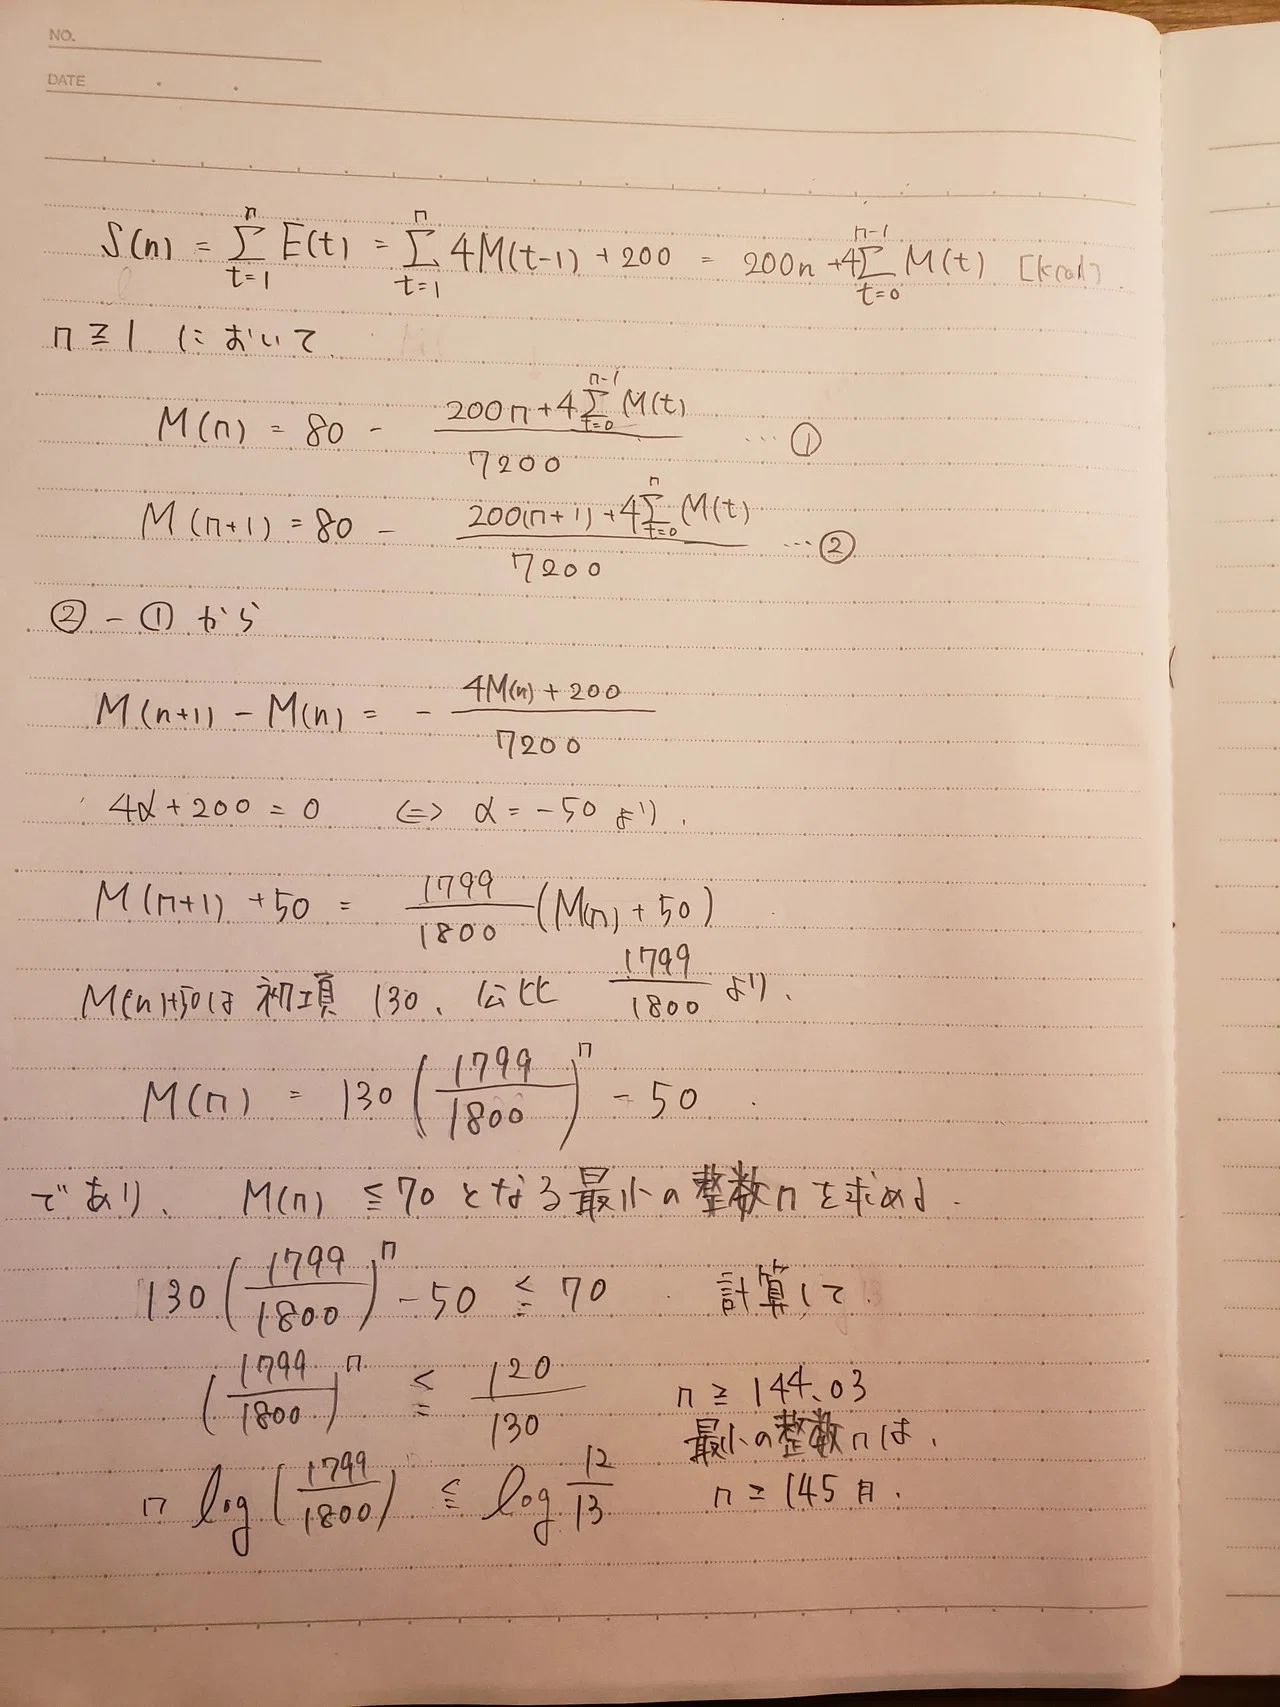 NO.
DATE
S(n) = Σ_{t=1}^{n} E(t) = Σ_{t=1}^{n} 4M(t-1) + 200 = 200n + 4Σ_{t=0}^{n-1} M(t) [kcal]
n ≧ 1 において
M(n) = 80 - (200n + 4Σ_{t=0}^{n-1} M(t)) / 7200 … ①
M(n+1) = 80 - (200(n+1) + 4Σ_{t=0}^{n} M(t)) / 7200 … ②
② - ① から
M(n+1) - M(n) = - (4M(n) + 200) / 7200
4α + 200 = 0 ⇔ α = -50 より,
M(n+1) + 50 = 1799/1800 (M(n) + 50)
M(n)+50は 初項 130、公比 1799/1800 より、
M(n) = 130 (1799/1800)^n - 50 .
であり、 M(n) ≦ 70 となる最小の整数nを求める.
130 (1799/1800)^n - 50 ≦ 70 計算して
(1799/1800)^n ≦ 120/130
n ≧ 144.03
最小の整数nは、
n log (1799/1800) ≦ log 12/13
n ≧ 145月.